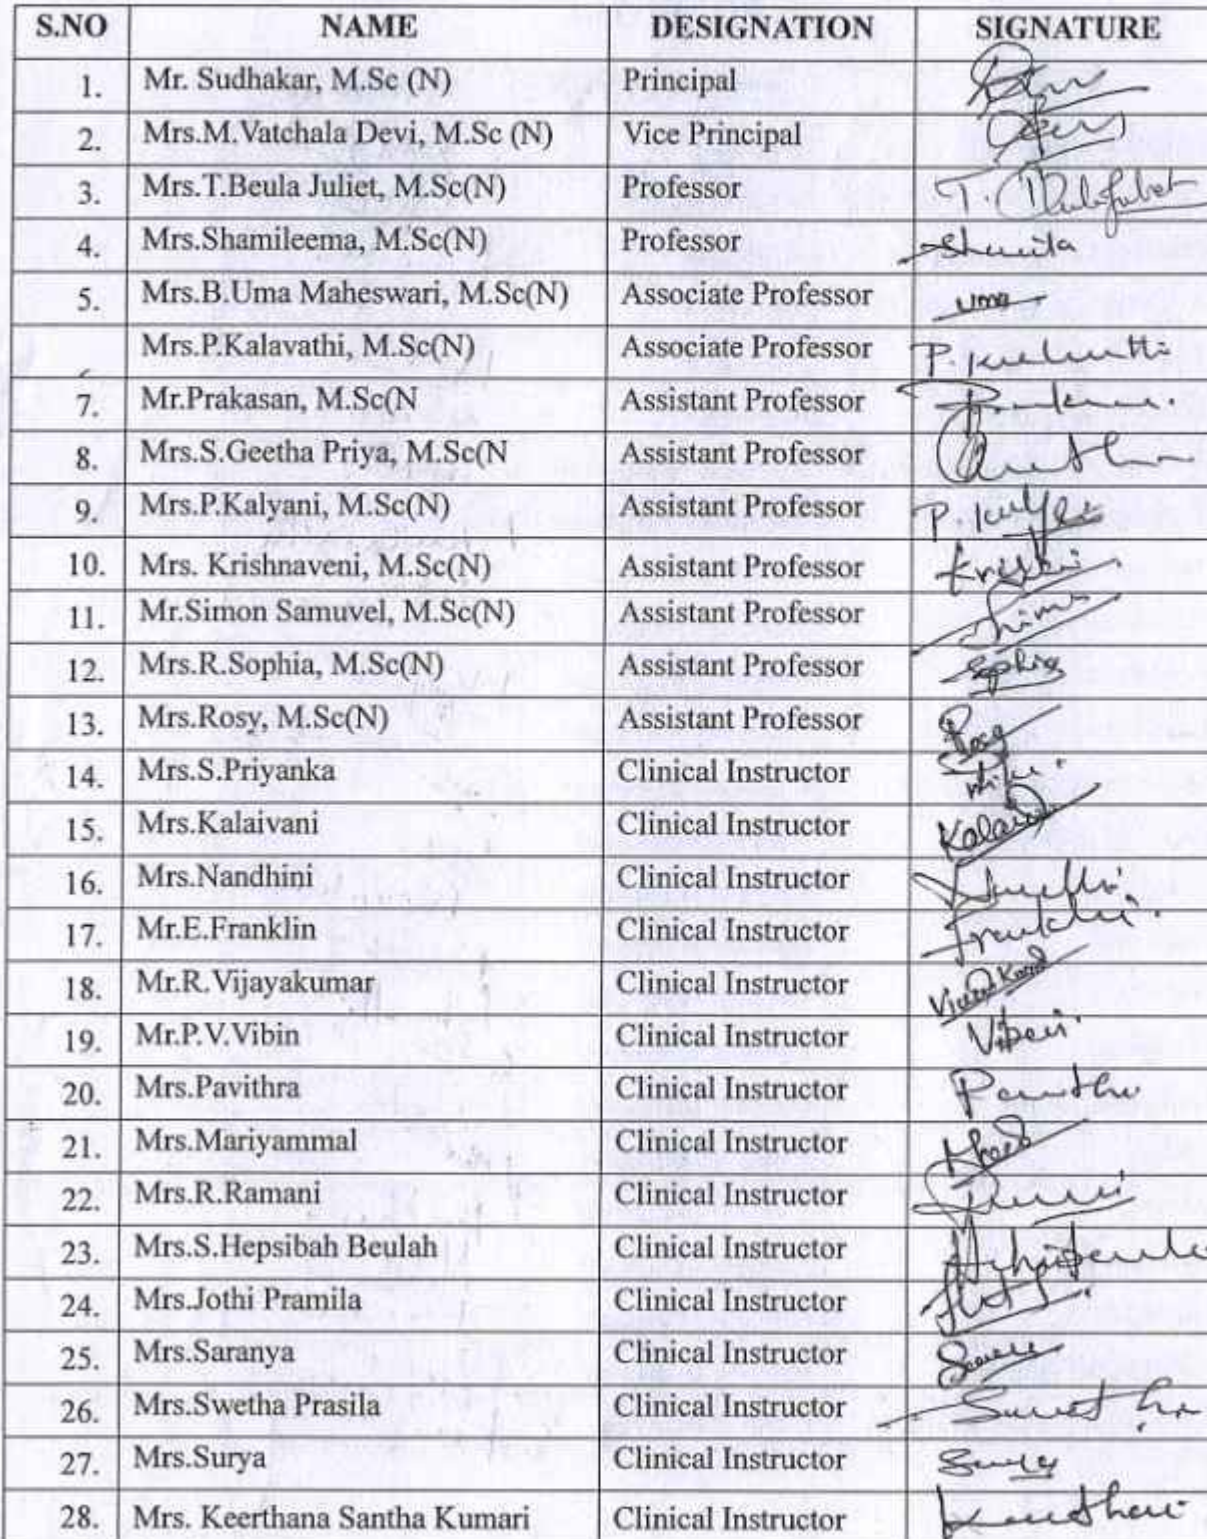 S.NO NAME DESIGNATION SIGNATURE
1. Mr. Sudhakar, M.Sc (N) Principal
2. Mrs.M.Vatchala Devi, M.Sc (N) Vice Principal
3. Mrs.T.Beula Juliet, M.Sc(N) Professor T.
4. Mrs.Shamileema, M.Sc(N) Professor
5. Mrs.B.Uma Maheswari, M.Sc(N) Associate Professor uma
Mrs.P.Kalavathi, M.Sc(N) Associate Professor P.
7. Mr.Prakasan, M.Sc(N Assistant Professor
8. Mrs.S.Geetha Priya, M.Sc(N Assistant Professor
9. Mrs.P.Kalyani, M.Sc(N) Assistant Professor P.
10. Mrs. Krishnaveni, M.Sc(N) Assistant Professor
11. Mr.Simon Samuvel, M.Sc(N) Assistant Professor
12. Mrs.R.Sophia, M.Sc(N) Assistant Professor Sophia
13. Mrs.Rosy, M.Sc(N) Assistant Professor Rosy
14. Mrs.S.Priyanka Clinical Instructor
15. Mrs.Kalaivani Clinical Instructor
16. Mrs.Nandhini Clinical Instructor
17. Mr.E.Franklin Clinical Instructor
18. Mr.R.Vijayakumar Clinical Instructor
19. Mr.P.V.Vibin Clinical Instructor
20. Mrs.Pavithra Clinical Instructor
21. Mrs.Mariyammal Clinical Instructor
22. Mrs.R.Ramani Clinical Instructor
23. Mrs.S.Hepsibah Beulah Clinical Instructor
24. Mrs.Jothi Pramila Clinical Instructor
25. Mrs.Saranya Clinical Instructor
26. Mrs.Swetha Prasila Clinical Instructor
27. Mrs.Surya Clinical Instructor
28. Mrs. Keerthana Santha Kumari Clinical Instructor